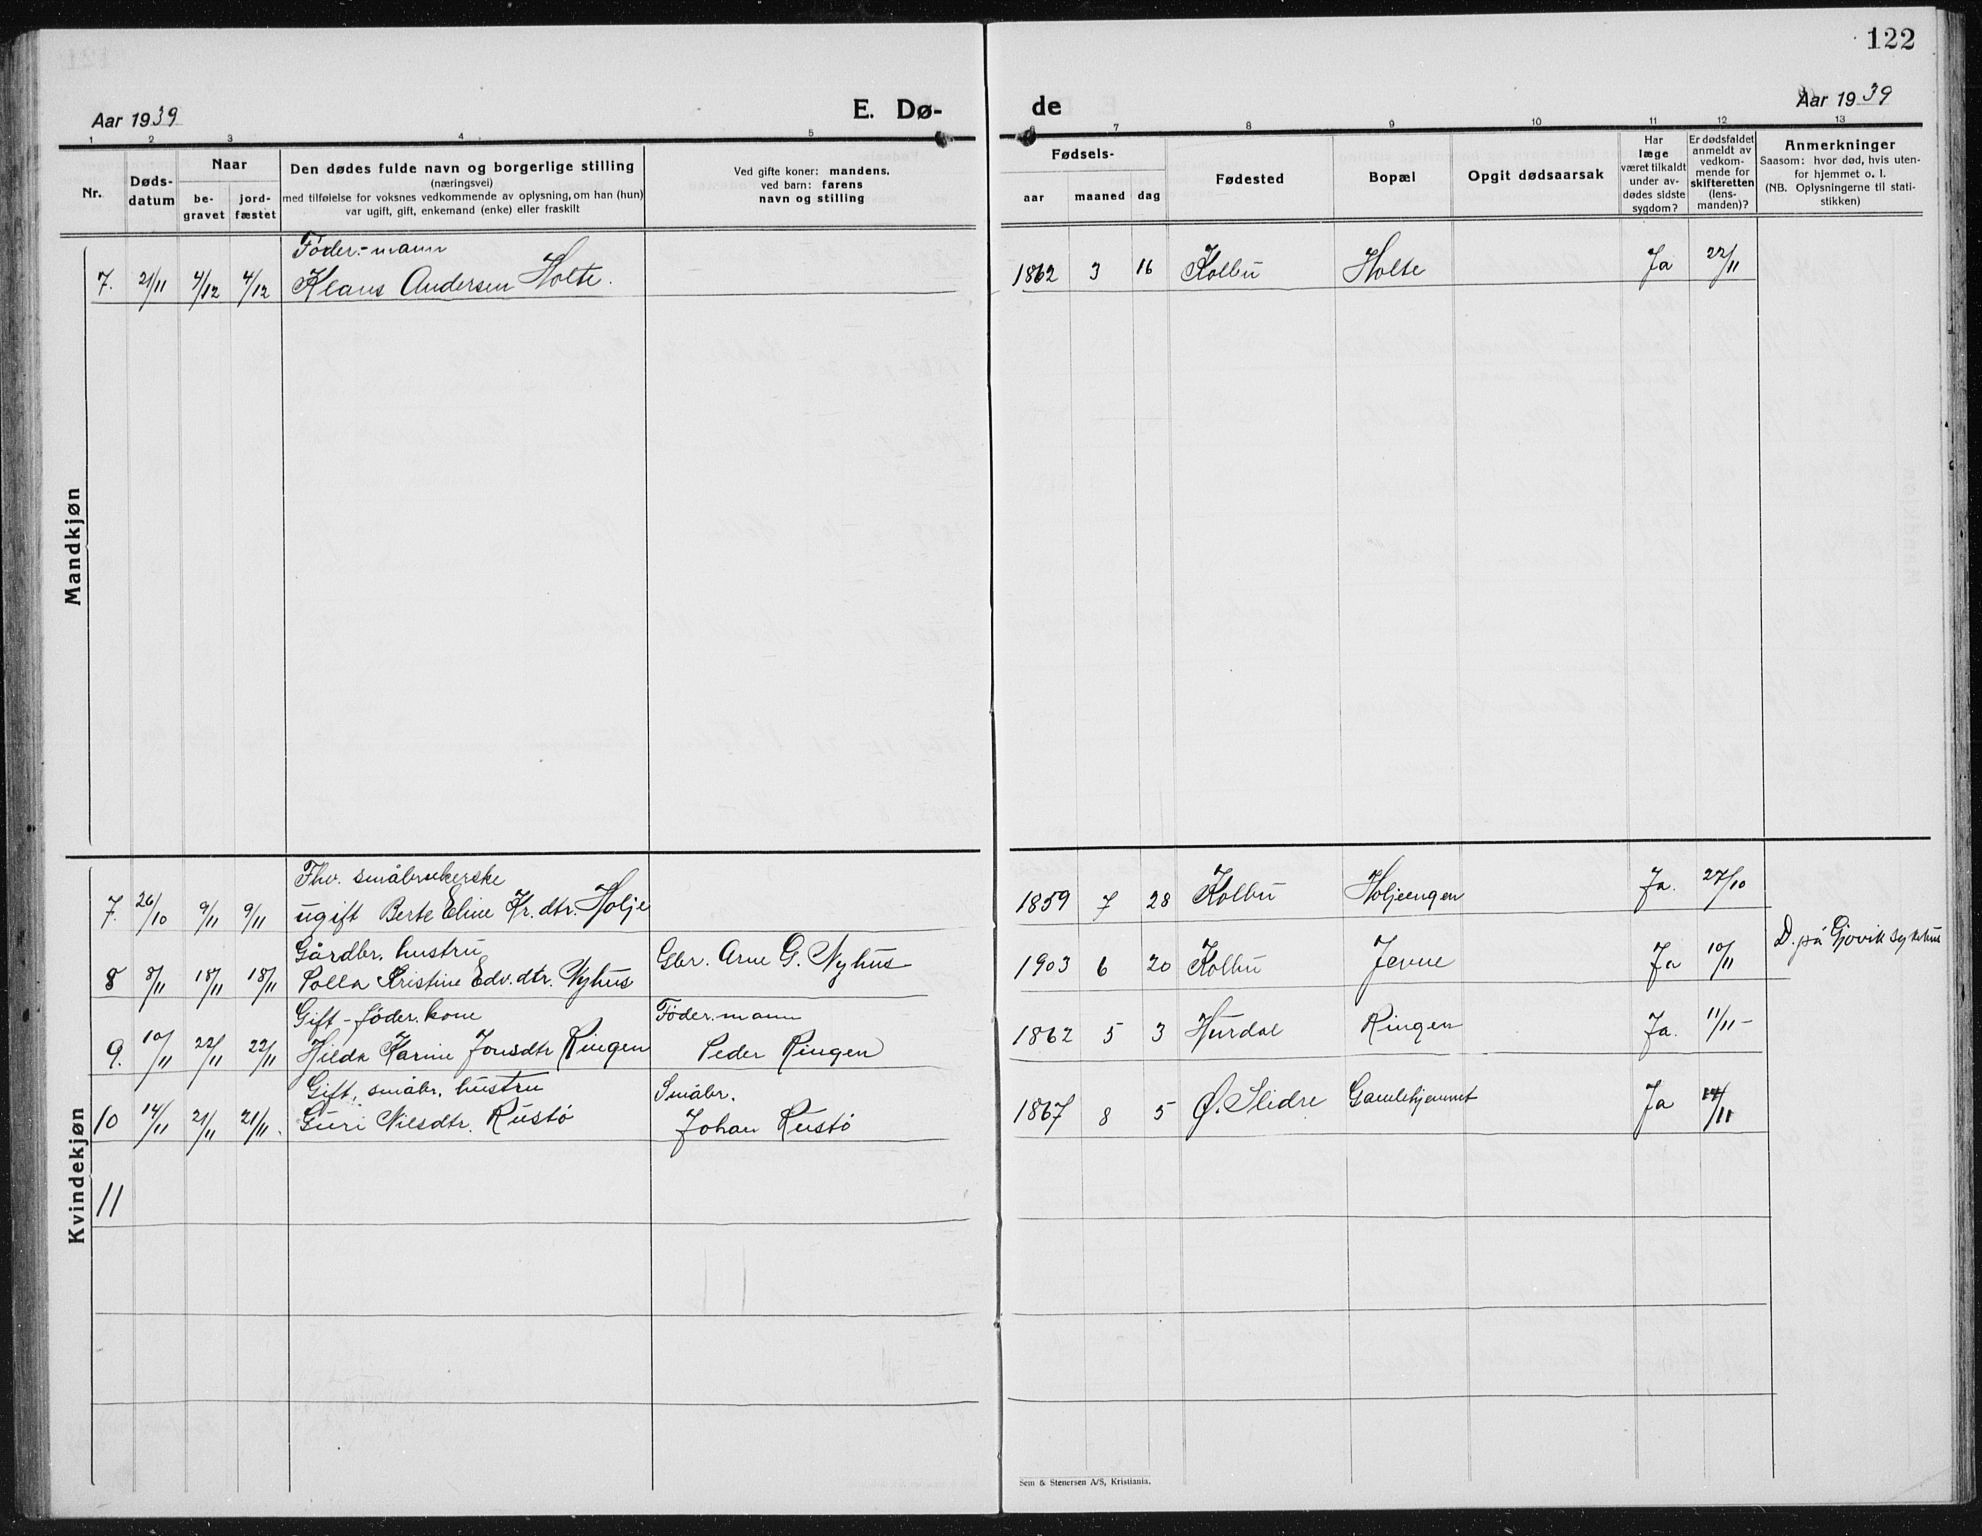 122
Aar 1939
E. Dø-
de
Aar 1939
1 2 3 4 5 6 7 8 9 10 11 12 13
Nr.
Døds-
datum
Naar
be-
gravet
jord-
fæstet
Den dødes fulde navn og borgerlige stilling
(næringsvei)
med tilføielse for voksnes vedkommende av oplysning, om han (hun)
var ugift, gift, enkemand (enke) eller fraskilt
Ved gifte koner: mandens.
ved barn: farens
navn og stilling
Fødsels-
aar
maaned
dag
Fødested
Bopæl
Opgit dødsaarsak
Har
læge
været tilkaldt
under av-
dødes sidste
sygdom?
Er dødsfaldet
anmeldt av
vedkom-
mende for
skifteretten
(lens-
manden)?
Anmerkninger
Saasom: hvor død, hvis uten-
for hjemmet o. l.
(NB. Oplysningerne til stati-
stikken)
Mandkjøn
Føder.-mann
7. 21/11 4/12 4/12 Klaus Andersen Holte. 1862 3 16 Kolbu Holte Ja 22/11
Kvindekjøn
Fhv. småbrukerske
7. 26/10 9/11 9/11 ugift Berte Eline Kr. dtr. Holje 1859 7 28 Kolbu Holjeengen Ja. 27/10
Gårdbr. hustru
8 8/11 18/11 18/11 Polla Kristine Edv. dtr. Nyhus Gbr. Arne G. Nyhus 1903 6 20 Kolbu Jevne Ja 10/11 D. på Gjøvik sykehus
Gift - føder. kone Føder. mann
9. 10/11 22/11 22/11 Hilda Karine Jonsdtr Ringen Peder Ringen 1862 5 3 Hurdal Ringen Ja. 11/11 -
Gift, småbr. hustru Småbr.
10 14/11 21/11 21/11. Guri Nilsdtr. Rustø Johan Rustø 1867 8 5 Ø. Slidre Gamlehjemmet Ja
11
Sem & Stenersen A/S, Kristiania.